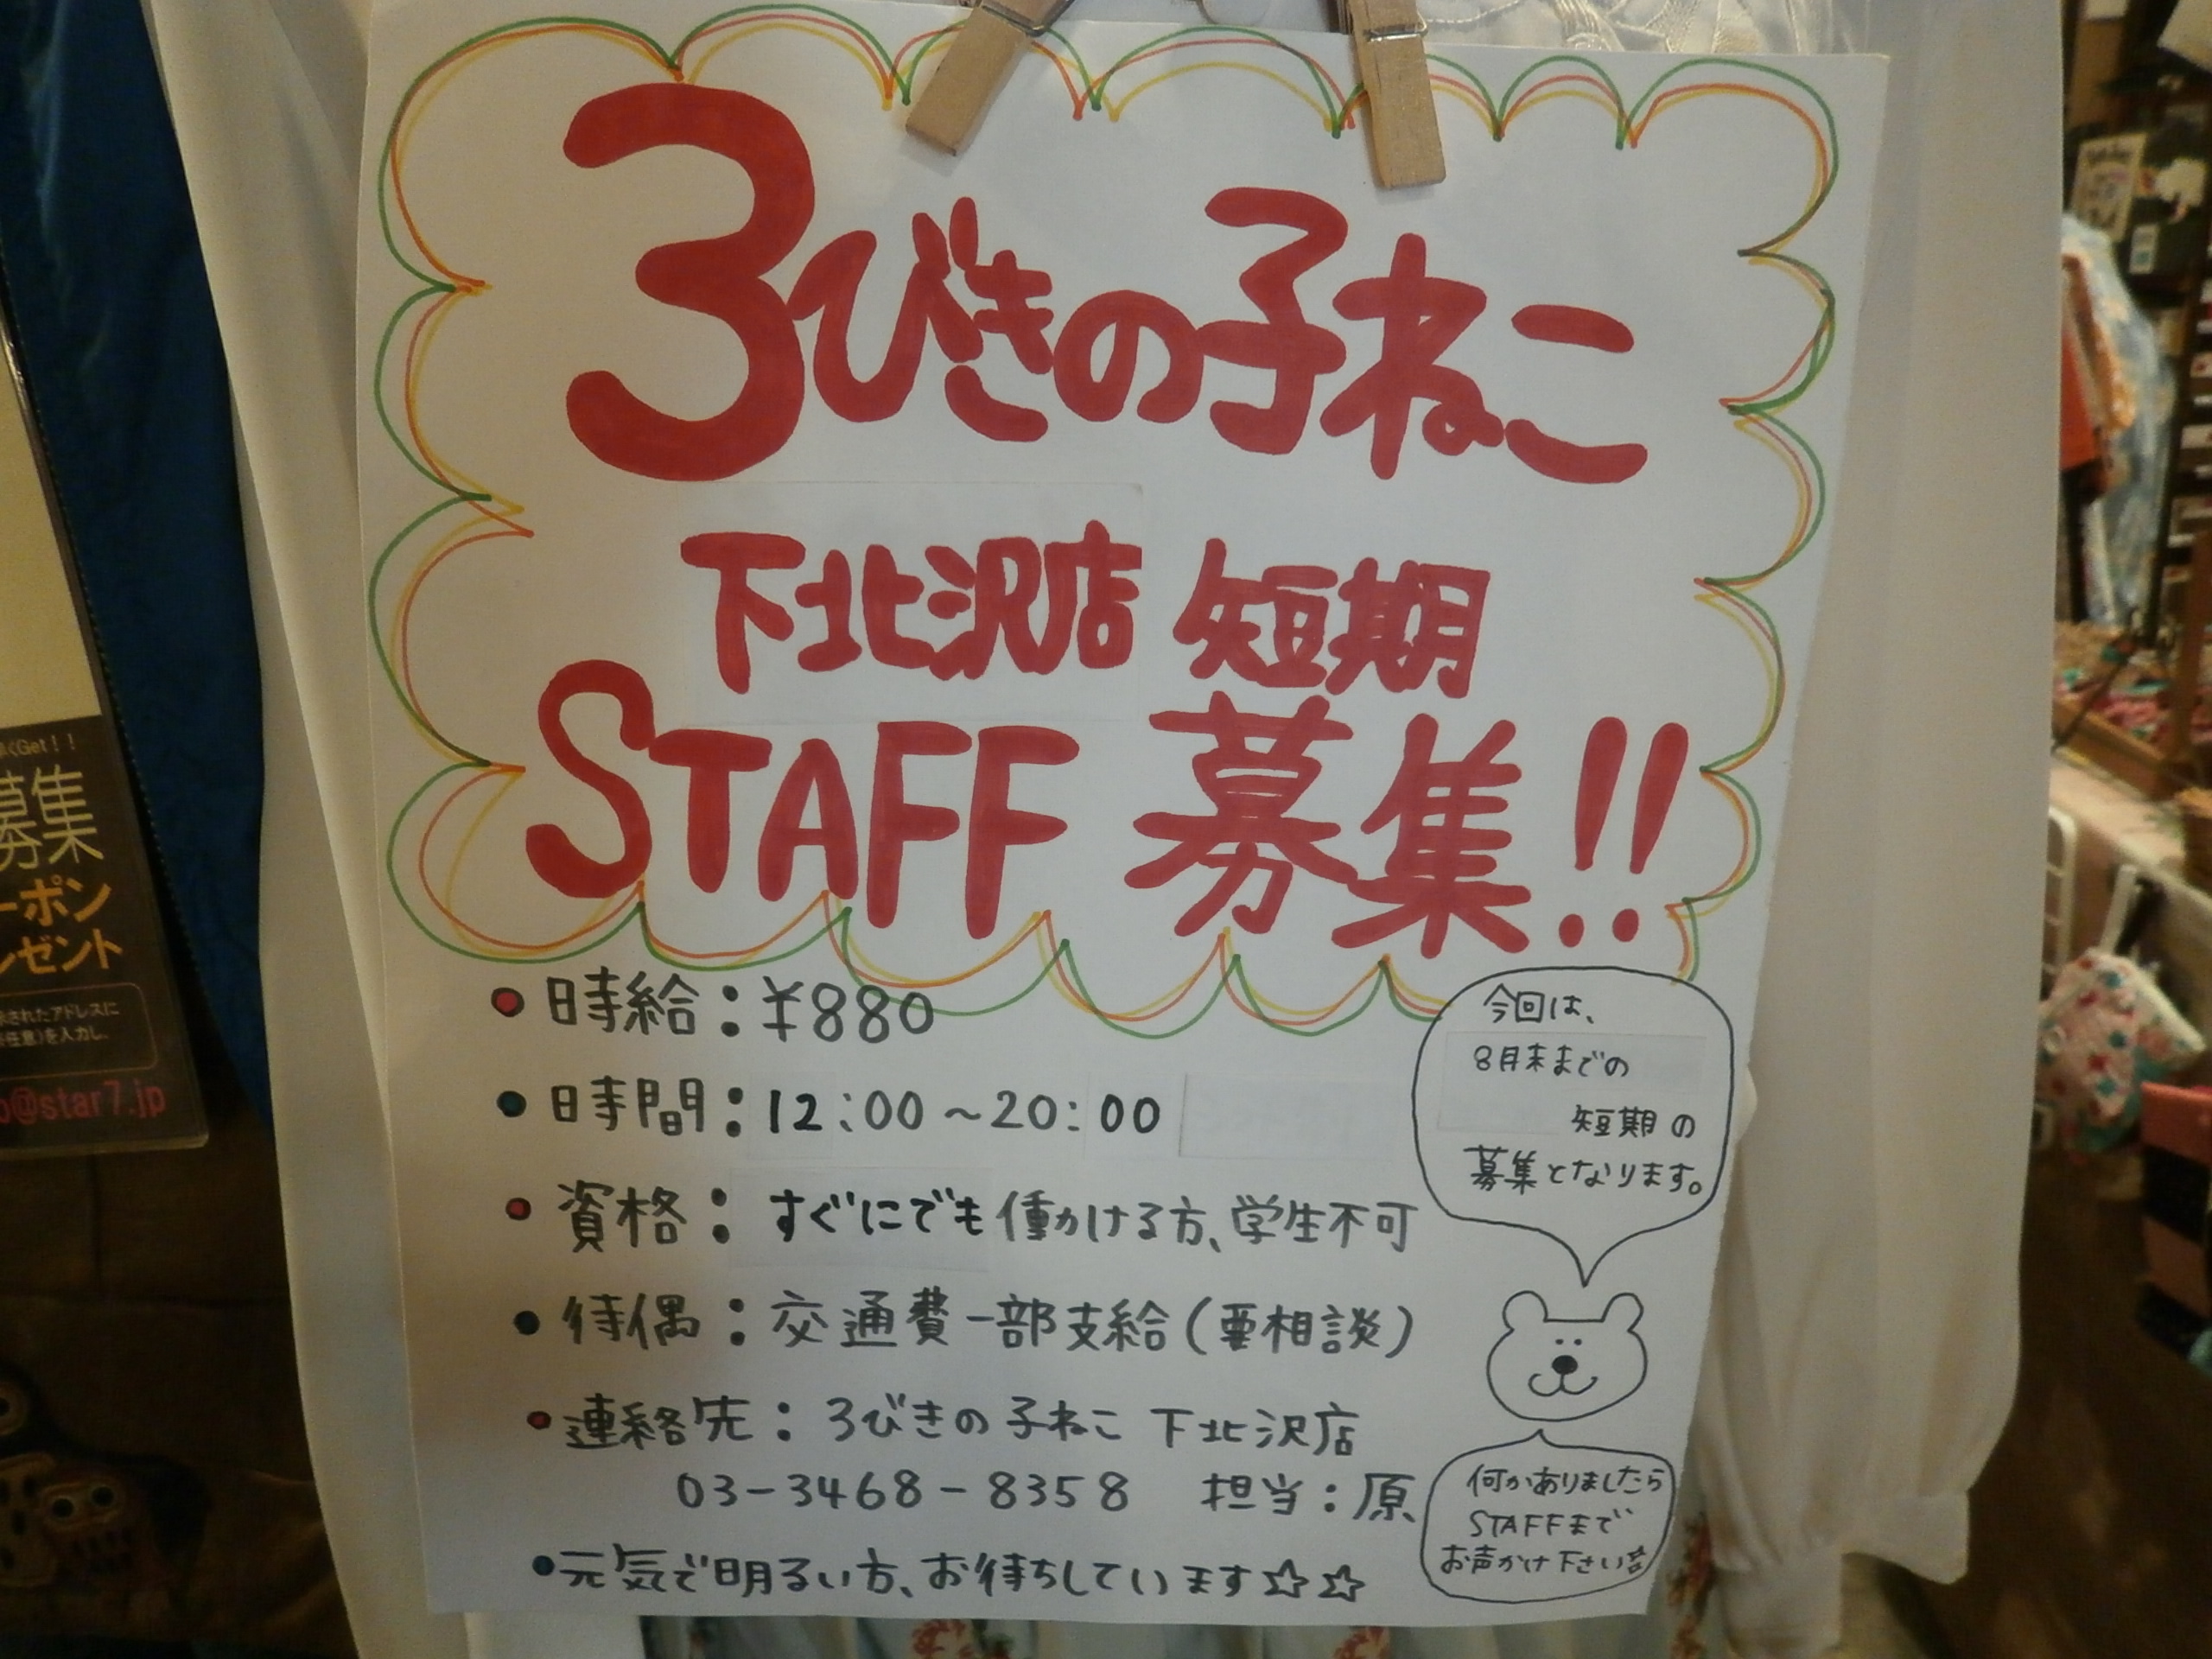 3びきの子ねこ
下北沢店 短期
STAFF 募集!!
・時給：¥880
・時間：12:00～20:00
・資格：すぐにでも働ける方、学生不可
・待偶：交通費一部支給(要相談)
・連絡先：3びきの子ねこ 下北沢店
03-3468-8358 担当：原
・元気で明るい方、お待ちしています☆☆
今回は、
8月末までの
短期の
募集となります。
何かありましたら
STAFFまで
お声かけ下さい☆
Get!!
募集
ーポン
レゼント
されたアドレスに
任意)を入力し、
@star7.jp